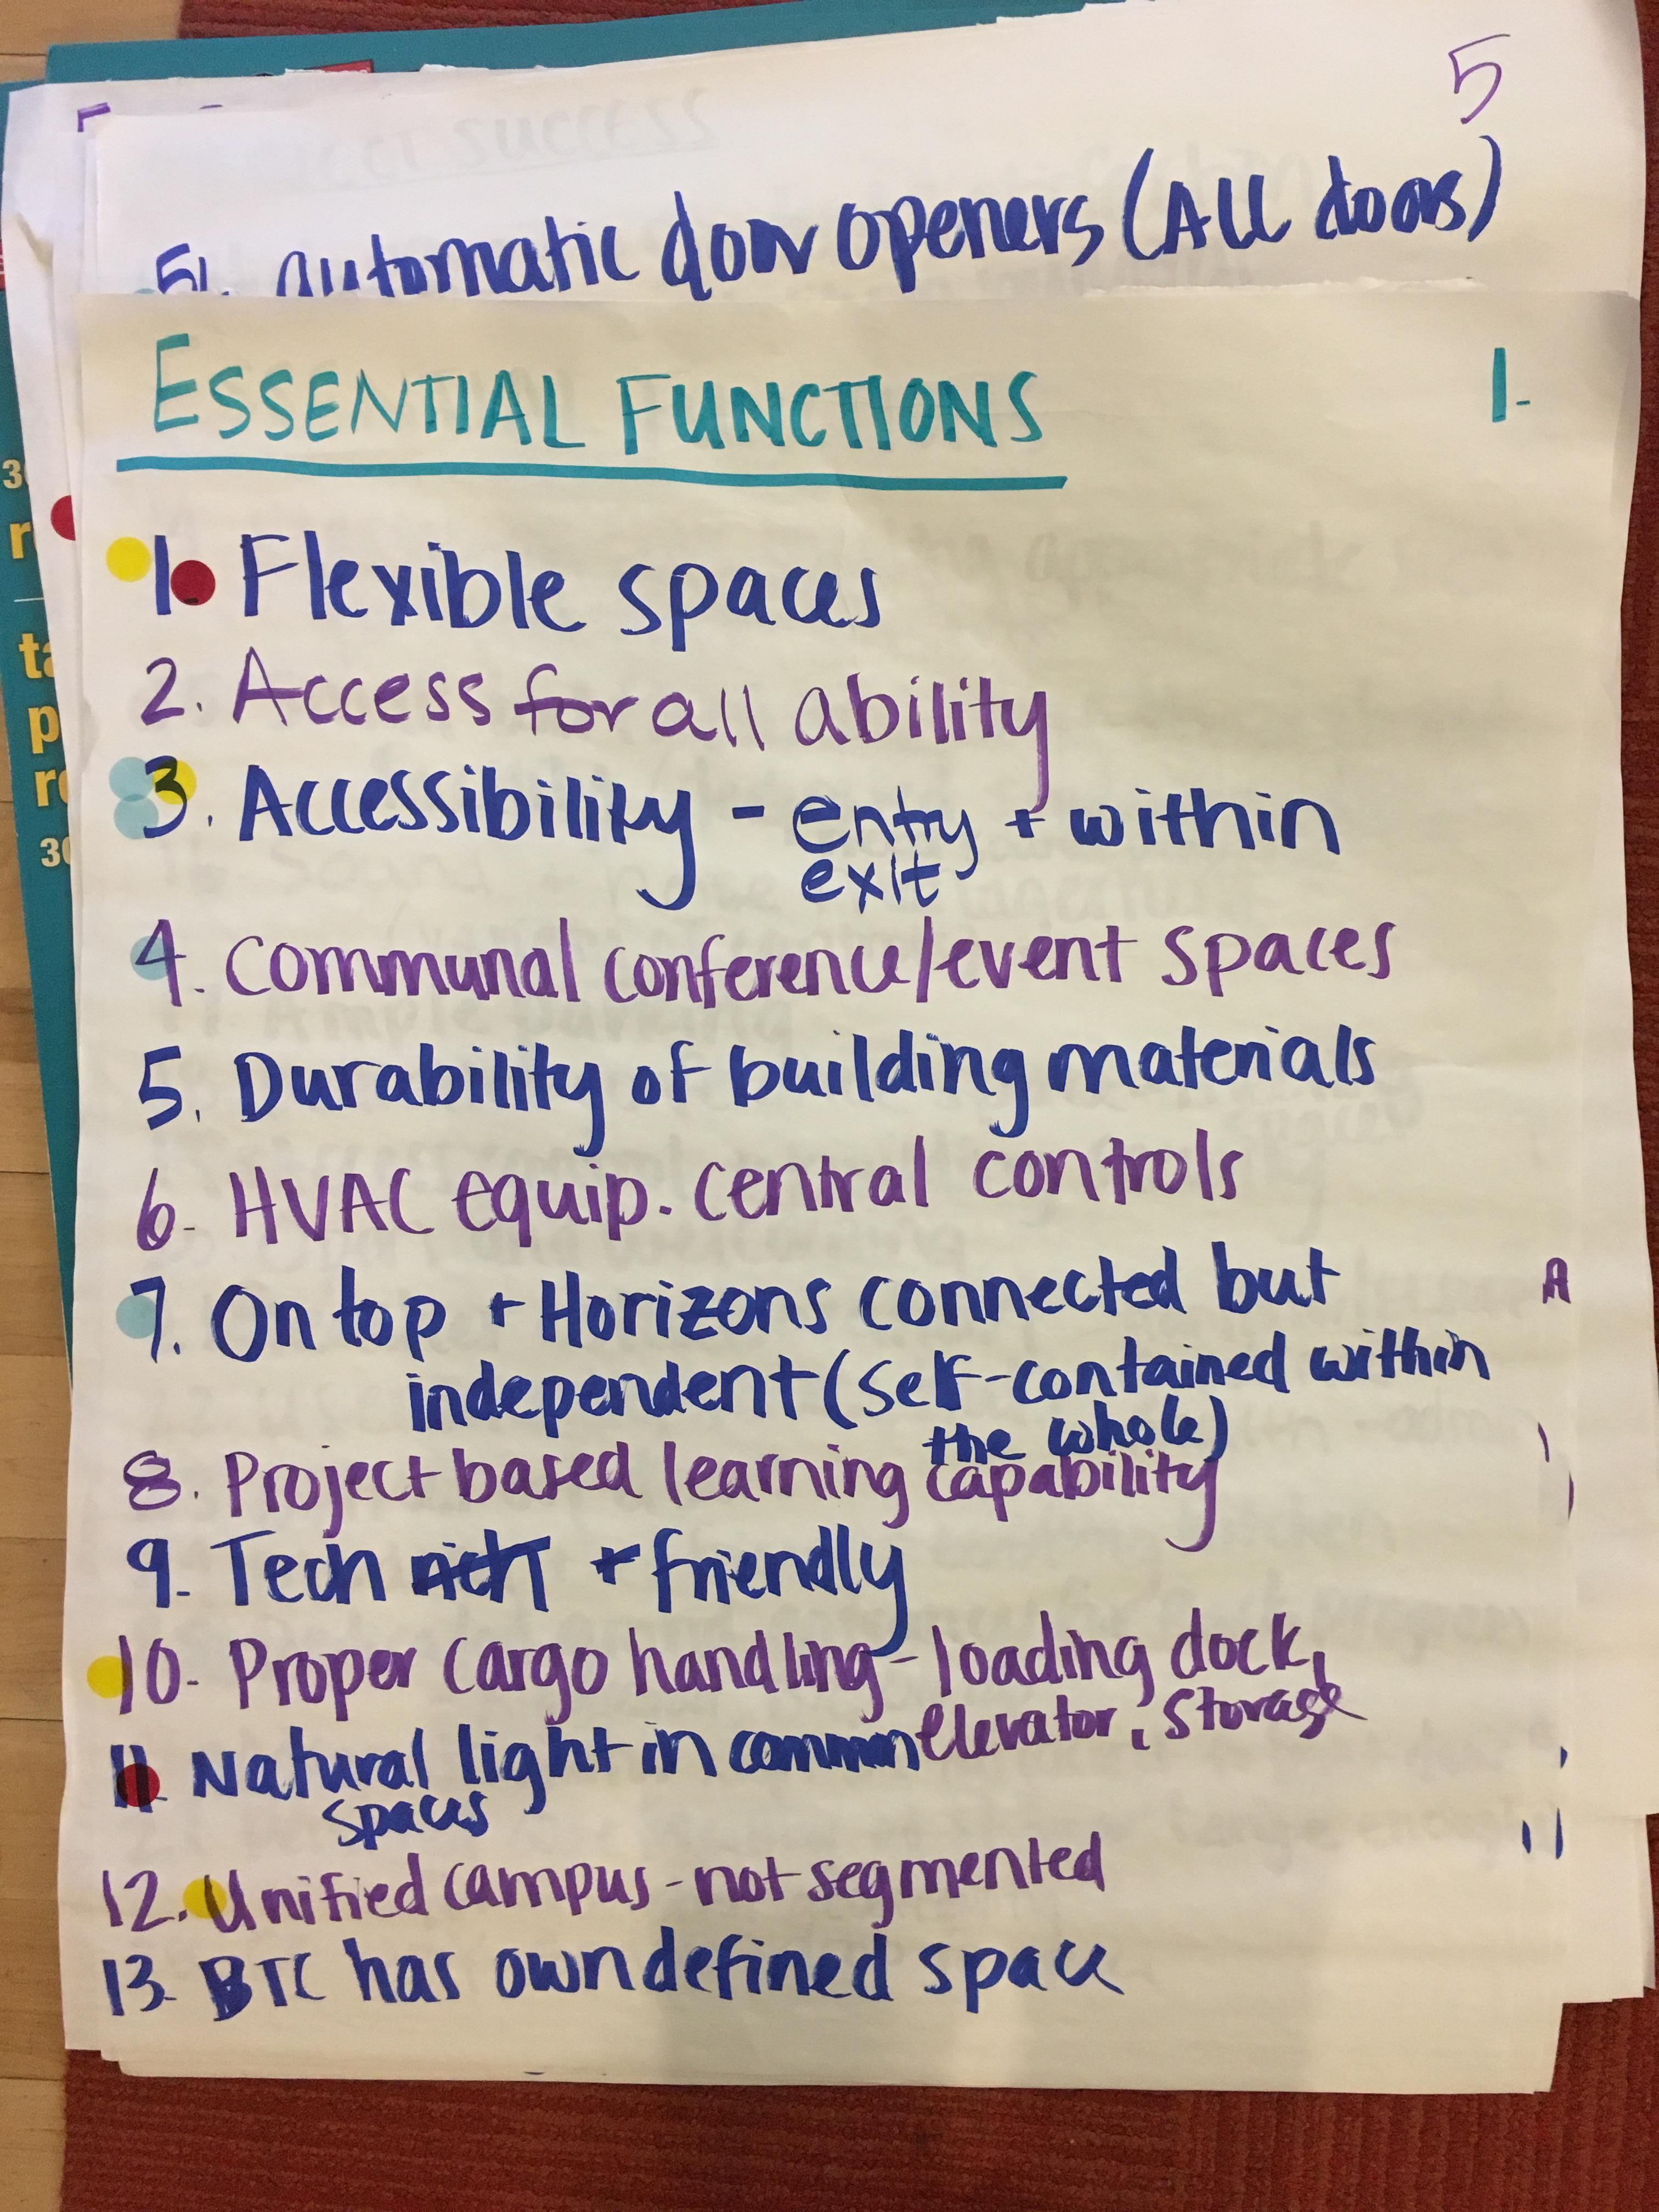 5
51. automatic door openers (ALL doors)
ESSENTIAL FUNCTIONS
1-
1. Flexible spaces
2. Access for all ability
3. Accessibility - entry + within
exit
4. Communal conference/event spaces
5. Durability of building materials
6- HVAC equip. central controls
7. On top + Horizons connected but
independent (self-contained within
the whole)
8. Project based learning capability
9- Tech rich + friendly
10- Proper cargo handling - loading dock,
elevator, storage
11. Natural light in common
spaces
12. Unified campus - not segmented
13- BTC has own defined space
30
r
ta
p
re
30
A